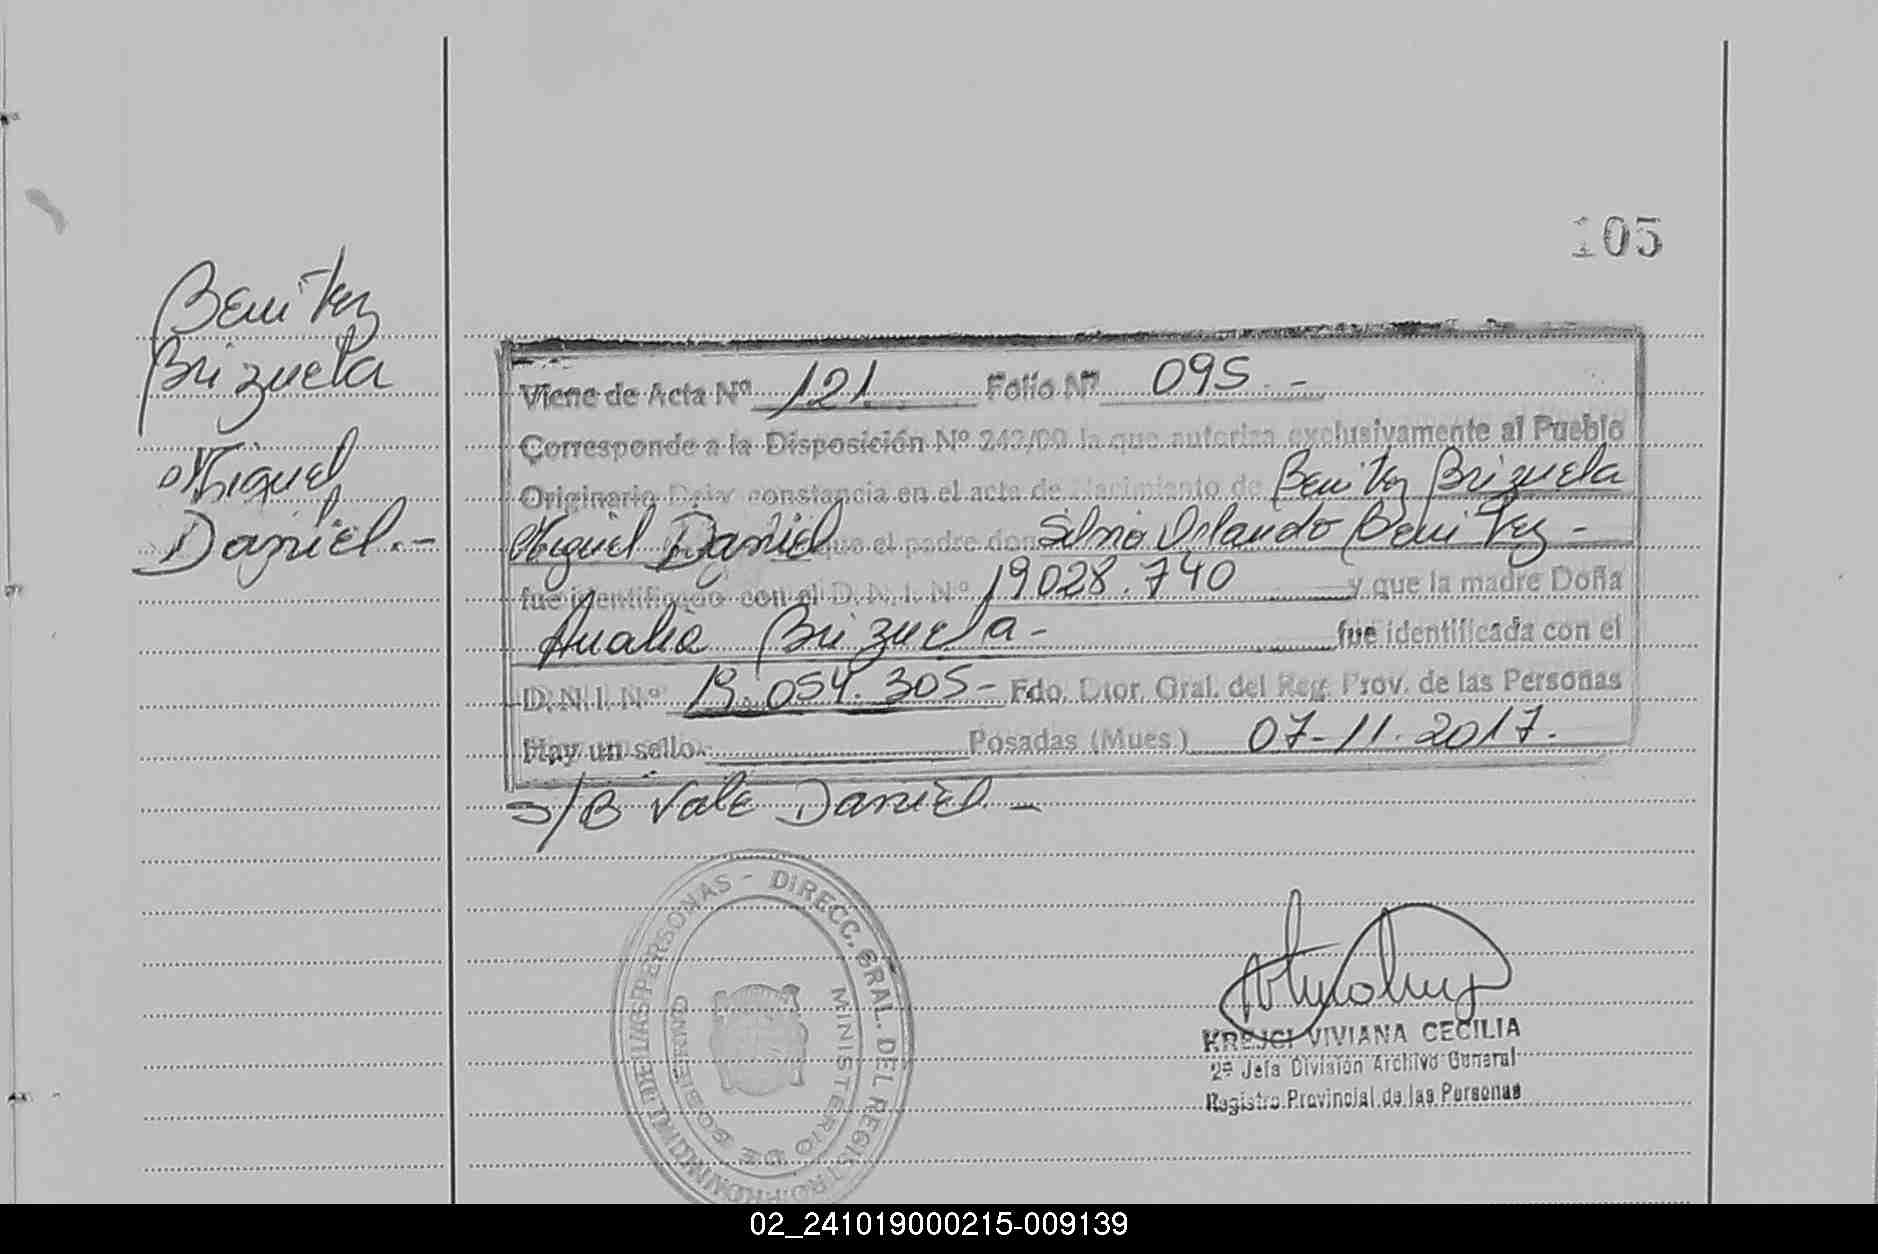 105
Benitez
Brizuela
Miguel
Daniel.-
Viene de Acta Nº 121 Folio Nº 095.-
Corresponde a la Disposición Nº 242/00 la que autoriza exclusivamente al Pueblo
Originario Dejar constancia en el acta de Nacimiento de Benitez Brizuela
Miguel Daniel que el padre don Silvio Orlando Benitez -
fue identificado con el D. N. I. Nº 19028.740 y que la madre Doña
Analia Brizuela - fue identificada con el
D. N. I. Nº 19.054.305- Fdo. Dtor. Gral. del Reg. Prov. de las Personas
Hay un sello. Posadas (Mnes.) 07-11.2017.
S/B Vale Daniel -
DIRECC. GRAL. DEL REGISTRO PROVINCIAL DE LAS PERSONAS -
MINISTERIO DE GOBIERNO
KREJCI VIVIANA CECILIA
2ª Jefa División Archivo General
Registro Provincial de las Personas
02_241019000215-009139